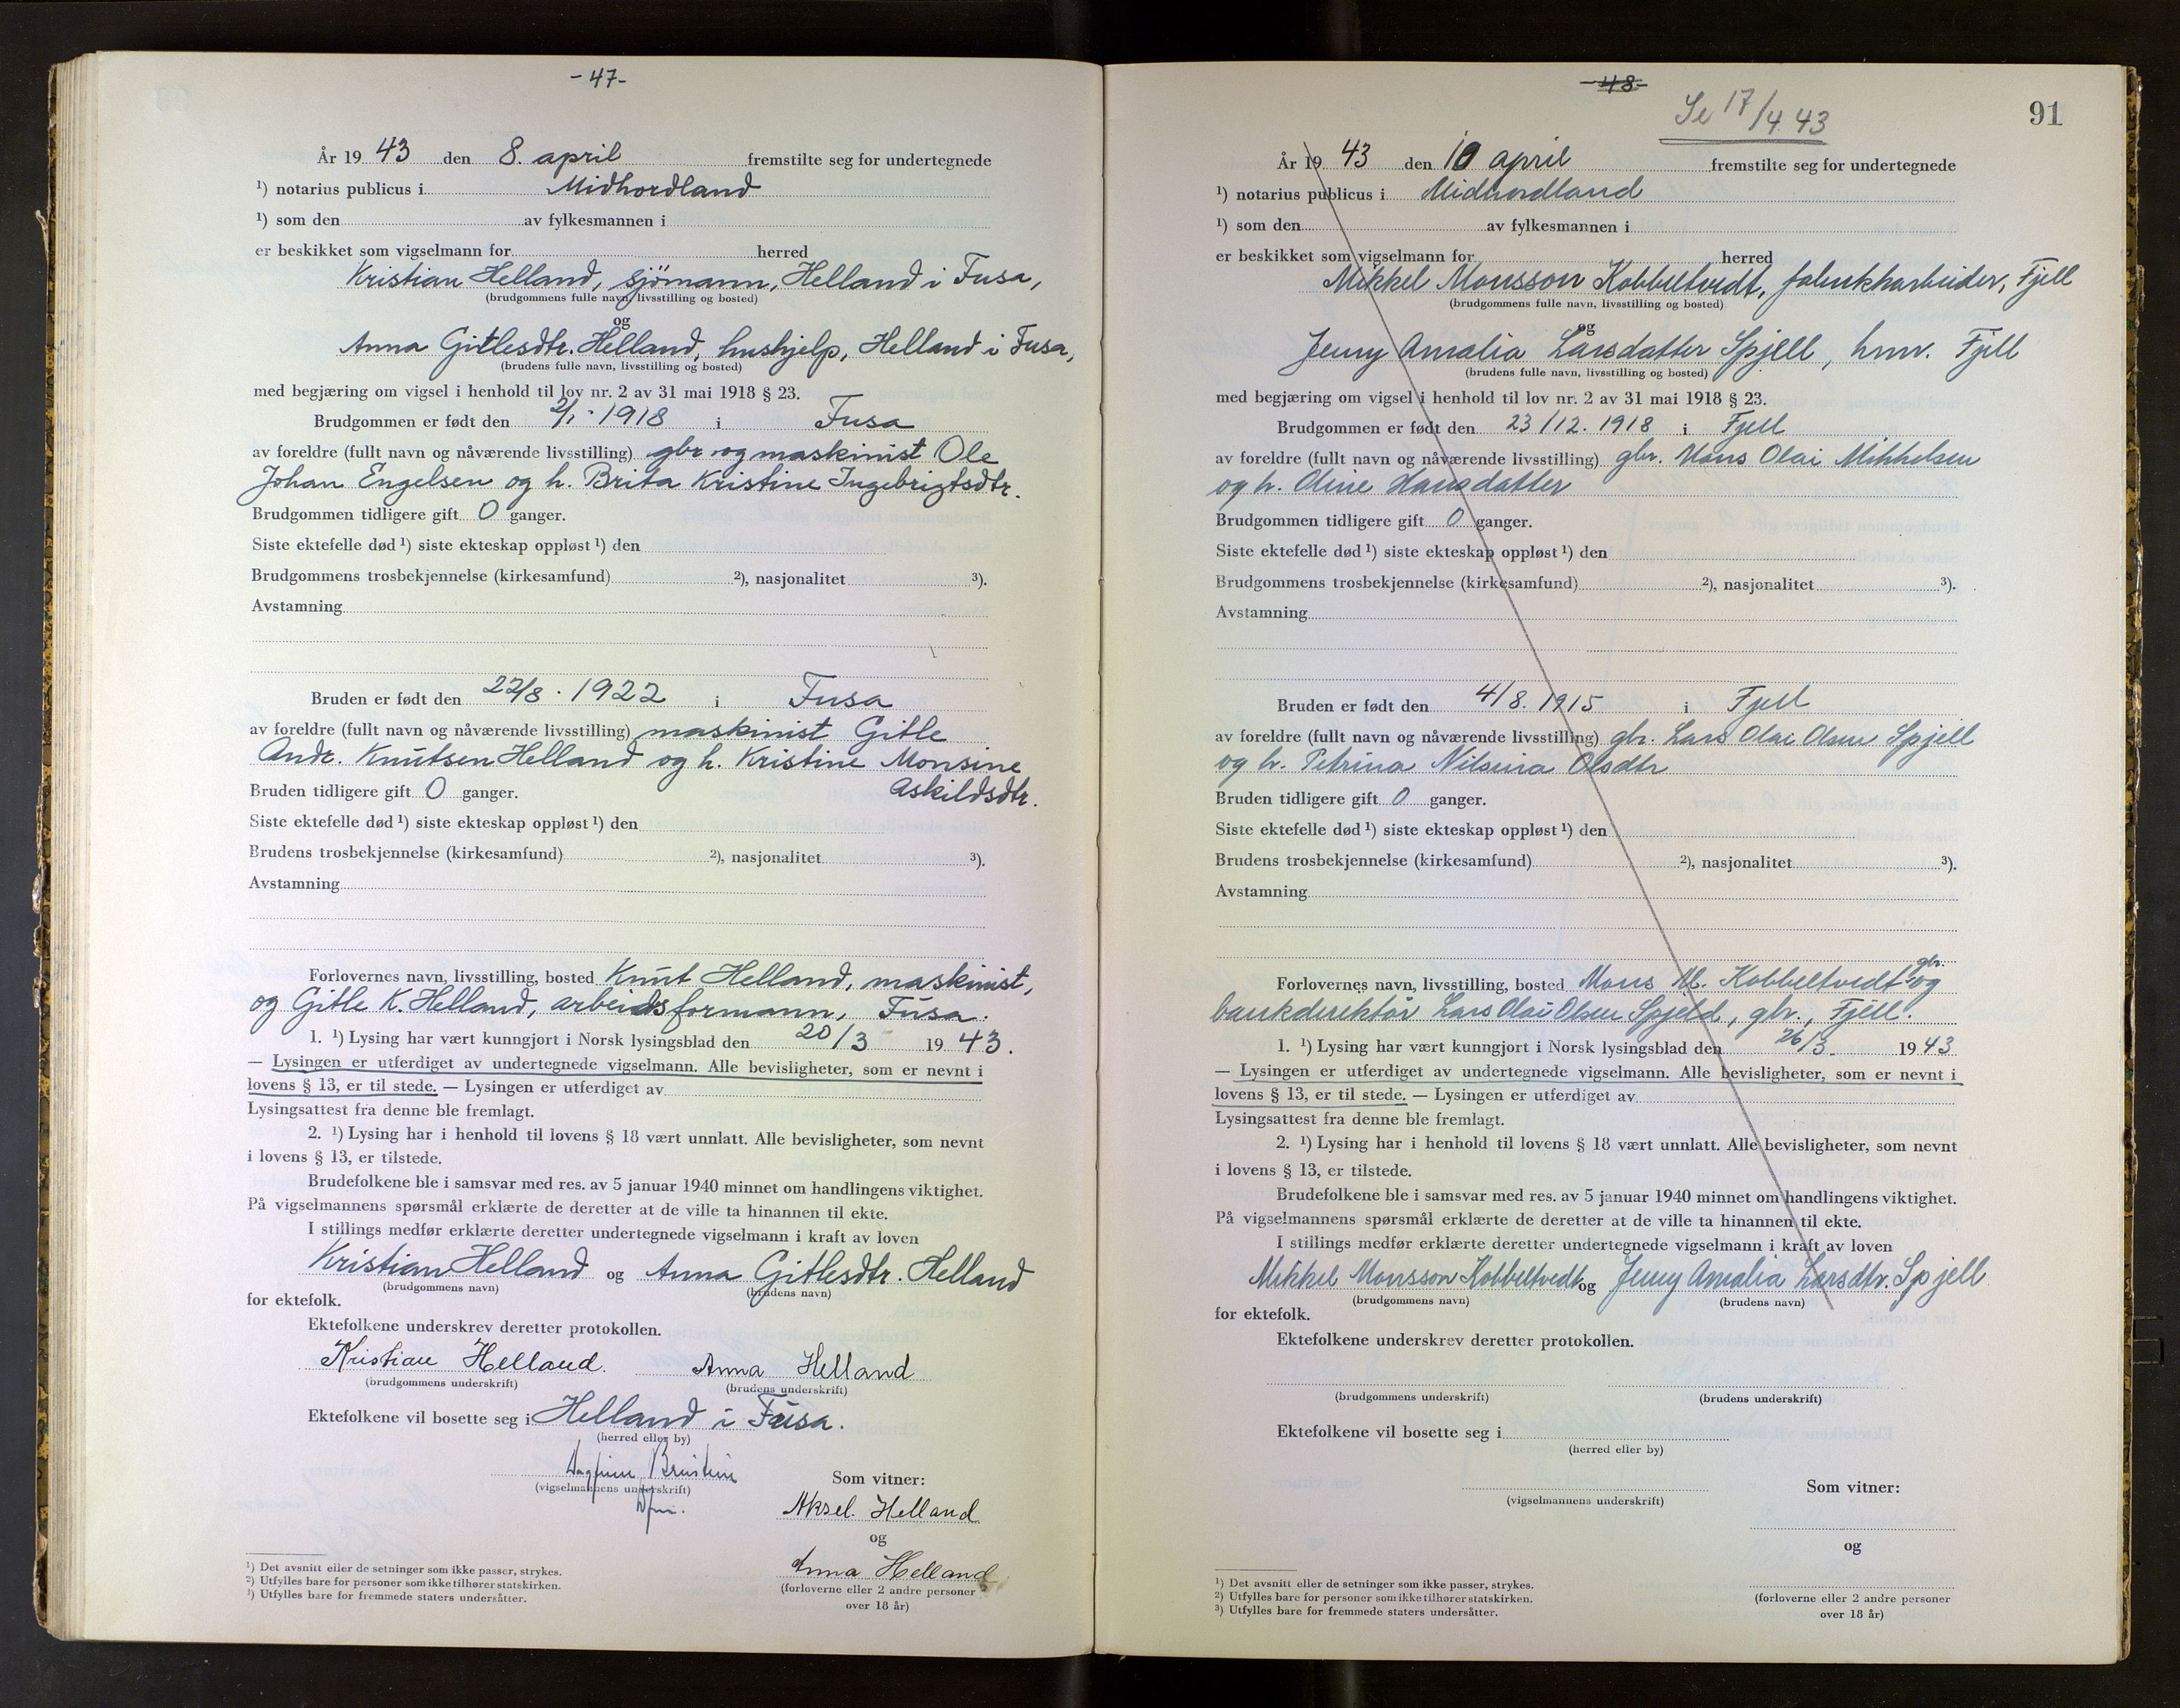 - 47 -
År 19 43 den 8. april fremstilte seg for undertegnede
¹) notarius publicus i Midhordland
¹) som den av fylkesmannen i
er beskikket som vigselmann for herred
Kristian Helland, sjömann, Helland i Fusa,
(brudgommens fulle navn, livsstilling og bosted)
og
Anna Gitlesdtr. Helland, hushjelp, Helland i Fusa,
(brudens fulle navn, livsstilling og bosted)
med begjæring om vigsel i henhold til lov nr. 2 av 31 mai 1918 § 23.
Brudgommen er født den 2/1 - 1918 i Fusa
av foreldre (fullt navn og nåværende livsstilling) gbr og maskinist Ole
Johan Engelsen og h. Brita Kristine Ingebrigtsdtr.
Brudgommen tidligere gift 0 ganger.
Siste ektefelle død ¹) siste ekteskap oppløst ¹) den
Brudgommens trosbekjennelse (kirkesamfund) ²), nasjonalitet ³).
Avstamning
Bruden er født den 22/8 . 1922 i Fusa
av foreldre (fullt navn og nåværende livsstilling) maskinist Gitle
Andr. Knutsen Helland og h. Kristine Monsine
Askildsdtr.
Bruden tidligere gift 0 ganger.
Siste ektefelle død ¹) siste ekteskap oppløst ¹) den
Brudens trosbekjennelse (kirkesamfund) ²), nasjonalitet ³).
Avstamning
Forlovernes navn, livsstilling, bosted Knut Helland, maskinist,
og Gitle K. Helland, arbeidsformann, Fusa.
1. ¹) Lysing har vært kunngjort i Norsk lysingsblad den 20/3 19 43.
— Lysingen er utferdiget av undertegnede vigselmann. Alle bevisligheter, som er nevnt i
lovens § 13, er til stede. — Lysingen er utferdiget av
Lysingsattest fra denne ble fremlagt.
2. ¹) Lysing har i henhold til lovens § 18 vært unnlatt. Alle bevisligheter, som nevnt
i lovens § 13, er tilstede.
Brudefolkene ble i samsvar med res. av 5 januar 1940 minnet om handlingens viktighet.
På vigselmannens spørsmål erklærte de deretter at de ville ta hinannen til ekte.
I stillings medfør erklærte deretter undertegnede vigselmann i kraft av loven
Kristian Helland og Anna Gitlesdtr. Helland
(brudgommens navn) (brudens navn)
for ektefolk.
Ektefolkene underskrev deretter protokollen.
Kristian Helland. Anna Helland
(brudgommens underskrift) (brudens underskrift)
Ektefolkene vil bosette seg i Helland i Fusa.
(herred eller by)
Dagfinn
(vigselmannens underskrift)
Som vitner:
Aksel. Helland
og
Anna Helland
(forloverne eller 2 andre personer
over 18 år)
¹) Det avsnitt eller de setninger som ikke passer, strykes.
²) Utfylles bare for personer som ikke tilhører statskirken.
³) Utfylles bare for fremmede staters undersåtter.
- 48 -
Se 17/4 43
91
År 19 43 den 10 april fremstilte seg for undertegnede
¹) notarius publicus i Midhordland
¹) som den av fylkesmannen i
er beskikket som vigselmann for herred
Mikkel Monsson Kobbeltvedt, fabrikkarbeider, Fjell
(brudgommens fulle navn, livsstilling og bosted)
og
Jenny Amalia Larsdatter Spjell, hmv. Fjell
(brudens fulle navn, livsstilling og bosted)
med begjæring om vigsel i henhold til lov nr. 2 av 31 mai 1918 § 23.
Brudgommen er født den 23/12. 1918 i Fjell
av foreldre (fullt navn og nåværende livsstilling) gbr. Mons Olai Mikkelsen
og h. Oline Hansdatter
Brudgommen tidligere gift 0 ganger.
Siste ektefelle død ¹) siste ekteskap oppløst ¹) den
Brudgommens trosbekjennelse (kirkesamfund) ²), nasjonalitet ³).
Avstamning
Bruden er født den 4/8. 1915 i Fjell
av foreldre (fullt navn og nåværende livsstilling) gbr. Lars Olai Olsen Spjell
og h. Petrina Nilsina Olsdtr
Bruden tidligere gift 0 ganger.
Siste ektefelle død ¹) siste ekteskap oppløst ¹) den
Brudens trosbekjennelse (kirkesamfund) ²), nasjonalitet ³).
Avstamning
gbr.
Forlovernes navn, livsstilling, bosted Mons M. Kobbeltvedt og
bankdirektør Lars Olai Olsen Spjeld, gbr., Fjell.
1. ¹) Lysing har vært kunngjort i Norsk lysingsblad den 26/3. 19 43
— Lysingen er utferdiget av undertegnede vigselmann. Alle bevisligheter, som er nevnt i
lovens § 13, er til stede. — Lysingen er utferdiget av
Lysingsattest fra denne ble fremlagt.
2. ¹) Lysing har i henhold til lovens § 18 vært unnlatt. Alle bevisligheter, som nevnt
i lovens § 13, er tilstede.
Brudefolkene ble i samsvar med res. av 5 januar 1940 minnet om handlingens viktighet.
På vigselmannens spørsmål erklærte de deretter at de ville ta hinannen til ekte.
I stillings medfør erklærte deretter undertegnede vigselmann i kraft av loven
Mikkel Monsson Kobbeltvedt og Jenny Amalia Larsdtr. Spjell
(brudgommens navn) (brudens navn)
for ektefolk.
Ektefolkene underskrev deretter protokollen.
(brudgommens underskrift) (brudens underskrift)
Ektefolkene vil bosette seg i
(herred eller by)
(vigselmannens underskrift)
Som vitner:
og
(forloverne eller 2 andre personer
over 18 år)
¹) Det avsnitt eller de setninger som ikke passer, strykes.
²) Utfylles bare for personer som ikke tilhører statskirken.
³) Utfylles bare for fremmede staters undersåtter.